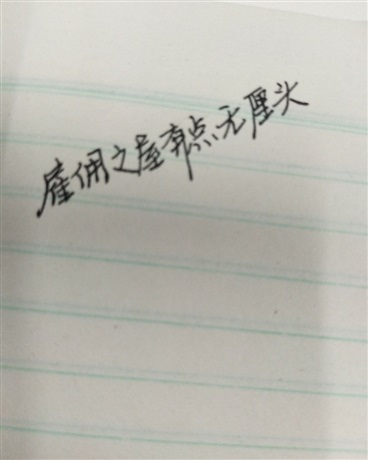 雇佣之屋有点无厘头